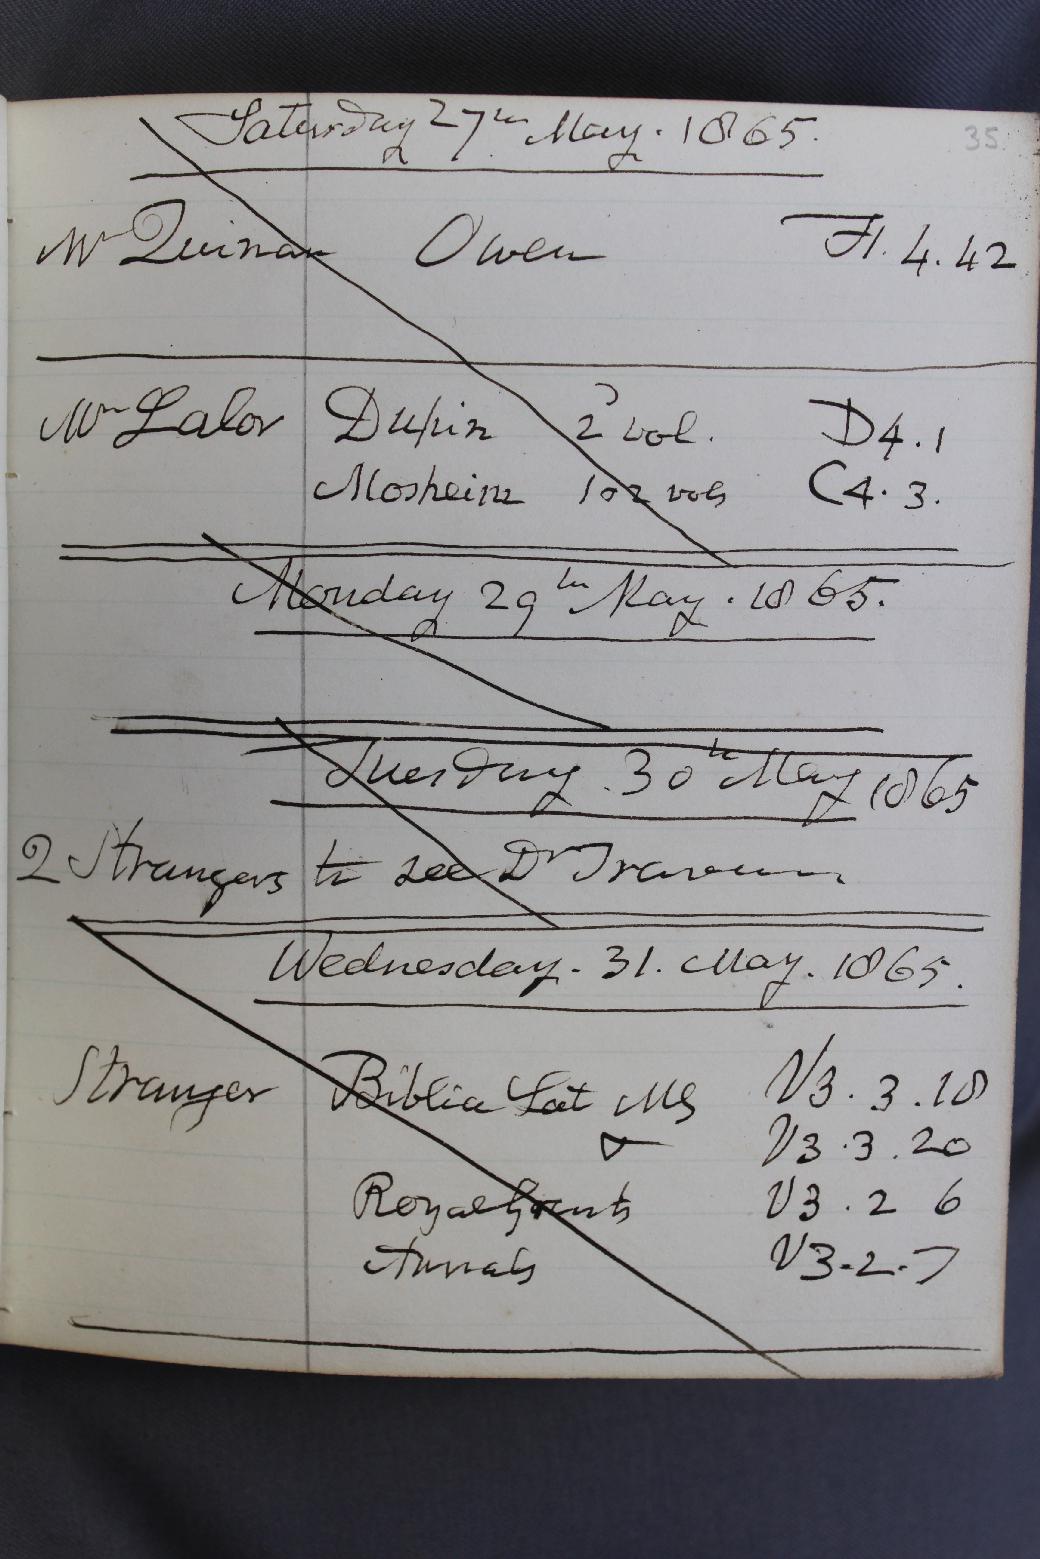 35
Saturday 27th May. 1865.
Mr Quinan Owen H. 4. 42
Mr Lalor Dupin 2 vol. D4. 1
Mosheim 1 or 2 vols C4. 3.
Monday 29th May. 1865.
Tuesday 30th May 1865
2 Strangers to see Dr Travers
Wednesday. 31. May. 1865.
Stranger Biblia Lat MS V3. 3. 18
V3. 3. 20
Royal Grants V3. 2 6
Annals V3-2-7